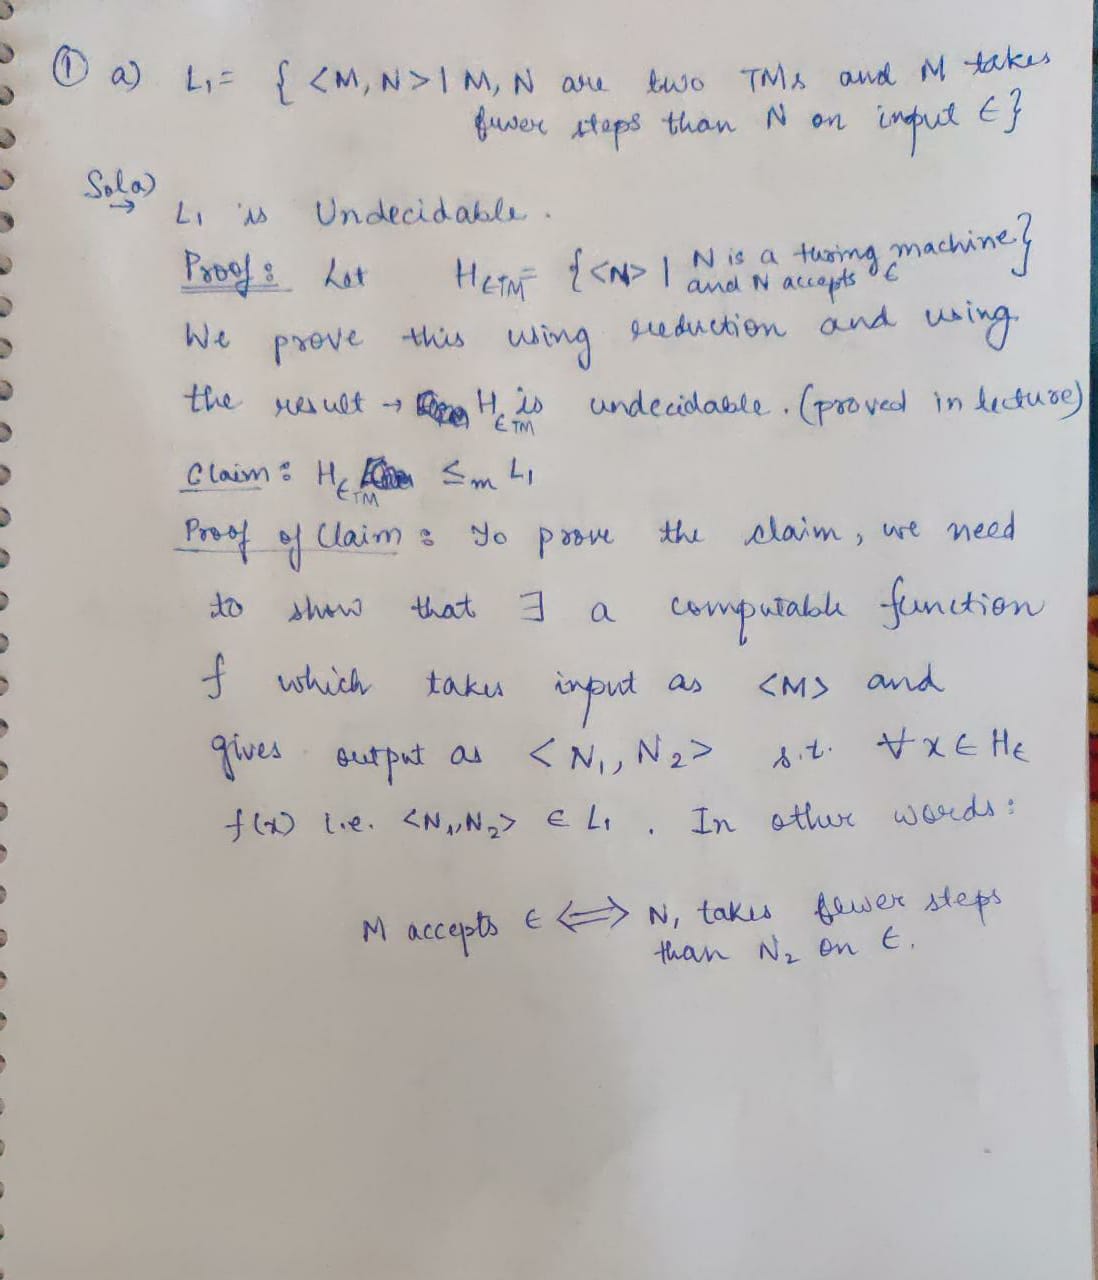 ① a) L₁ = { <M, N> | M, N are two TMs and M takes
fuwer steps than N on input ϵ}
Sol a)
→
L₁ is Undecidable.
Proof : Let HϵTM = {<N> | N is a turing machine}
and N accepts ϵ
We prove this using reduction and using
the result → HϵTM is undecidable. (proved in lecture)
Claim : HϵTM ≤m L₁
Proof of Claim : To prove the claim, we need
to show that ∃ a computable function
f which takes input as <M> and
gives output as <N₁, N₂> s.t. ∀ x ϵ Hϵ
f(x) i.e. <N₁, N₂> ϵ L₁ . In other words :
M accepts ϵ ⟺ N₁ takes fewer steps
than N₂ on ϵ.